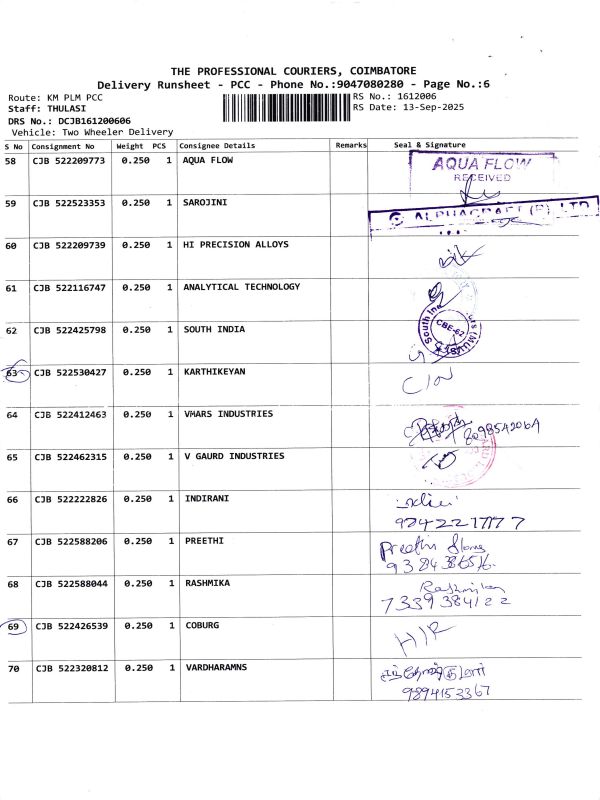 THE PROFESSIONAL COURIERS, COIMBATORE
Delivery Runsheet - PCC - Phone No.:9047080280 - Page No.:6
Route: KM PLM PCC RS No.: 1612006
Staff: THULASI RS Date: 13-Sep-2025
DRS No.: DCJB161200606
Vehicle: Two Wheeler Delivery
S No Consignment No Weight PCS Consignee Details Remarks Seal & Signature
58 CJB 522209773 0.250 1 AQUA FLOW AQUA FLOW
RECEIVED
59 CJB 522523353 0.250 1 SAROJINI ALPHACRAFT (P) LTD
60 CJB 522209739 0.250 1 HI PRECISION ALLOYS
61 CJB 522116747 0.250 1 ANALYTICAL TECHNOLOGY
62 CJB 522425798 0.250 1 SOUTH INDIA South CBE-62
63 CJB 522530427 0.250 1 KARTHIKEYAN
64 CJB 522412463 0.250 1 VMARS INDUSTRIES
65 CJB 522462315 0.250 1 V GAURD INDUSTRIES
66 CJB 522222826 0.250 1 INDIRANI
67 CJB 522588206 0.250 1 PREETHI Preethi
68 CJB 522588044 0.250 1 RASHMIKA Rashmika
7339384122
69 CJB 522426539 0.250 1 COBURG
70 CJB 522320812 0.250 1 VARDHARAMNS
9894153367